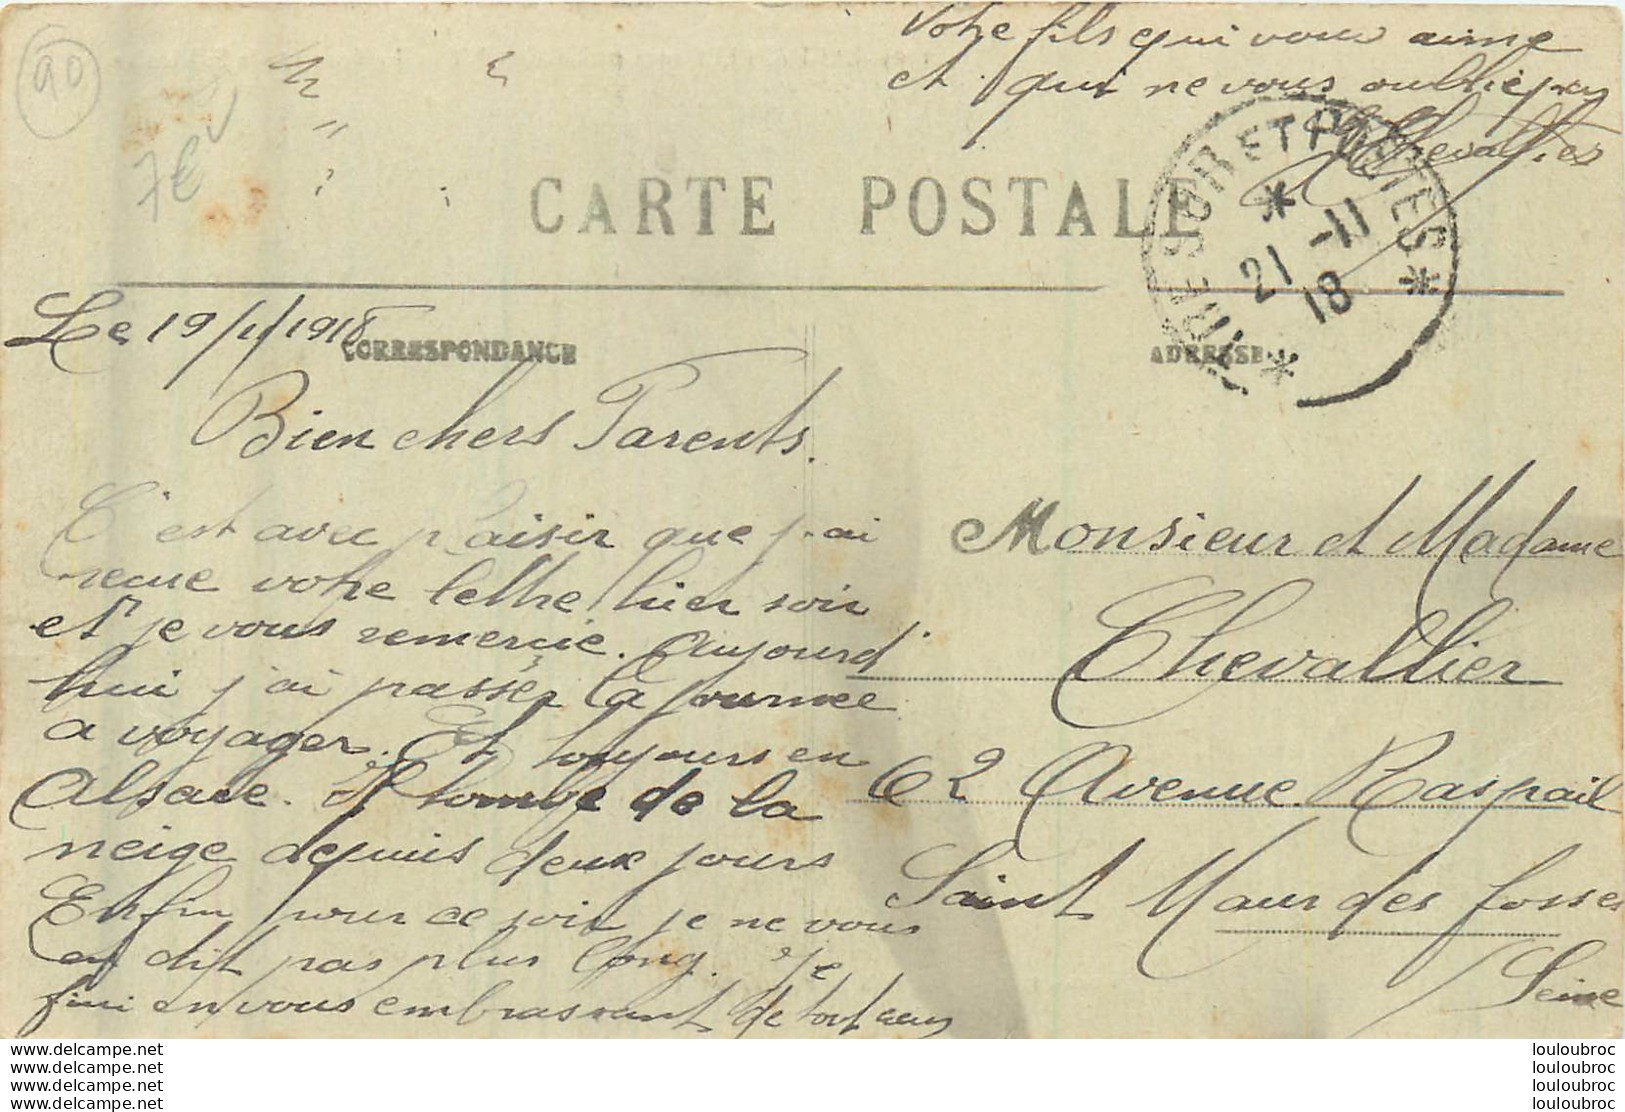 90
7€
Votre fils qui vous aime
et qui ne vous oublie pas
Chevallier
CARTE POSTALE
TRESOR ET POSTES
21 -11
18
Le 19/11/1918
CORRESPONDANCE
ADRESSE
Bien chers Parents.
C'est avec plaisir que j'ai
recue votre lettre hier soir
et je vous remerçie. Aujourd'
hui j'ai passer la journee
a voyager. Et toujours en
Alsace. Il tombe de la
neige depuis deux jours
Enfin pour ce soir je ne vous
en dit pas plus long. Je
fini en vous embrassant de tout
Monsieur et Madame
Chevallier
62 Avenue Raspail
Saint Maur des fosses
Seine
www.delcampe.net
www.delcampe.net
www.delcampe.net
www.delcampe.net
louloubroc
louloubroc
louloubroc
louloubroc